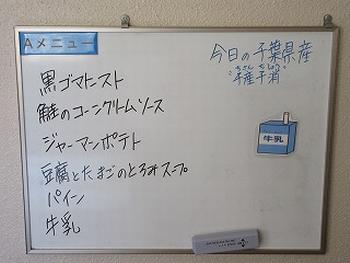 Aメニュー
黒ゴマトースト
鮭のコーンクリームソース
ジャーマンポテト
豆腐とたまごのとろみスープ
パイン
牛乳
今日の千葉県産
ちさん ちしょう
牛乳